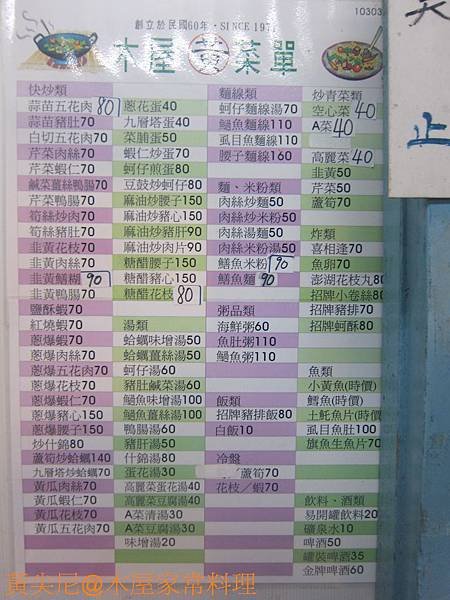 10303
創立於民國60年・SINCE 1971
木屋黃菜單
快炒類
蒜苗五花肉80
蒜苗豬肚70
白切五花肉70
芹菜肉絲70
芹菜蝦仁70
鹹菜薑絲鴨腸70
芹菜鴨腸70
筍絲炒肉70
筍絲豬肚70
韭黃花枝70
韭黃肉絲70
韭黃鱔糊90
韭黃鴨腸70
鹽酥蝦70
紅燒蝦70
蔥爆蝦70
蔥爆肉絲70
蔥爆五花肉70
蔥爆花枝70
蔥爆蝦仁70
蔥爆豬心150
蔥爆腰子150
炒什錦80
蘆筍炒蛤蠣140
九層塔炒蛤蠣70
黃瓜肉絲70
黃瓜蝦仁70
黃瓜花枝70
黃瓜五花肉70
蔥花蛋40
九層塔蛋40
菜脯蛋50
蝦仁炒蛋70
蚵仔煎蛋80
豆鼓炒蚵仔80
麻油炒腰子150
麻油炒豬心150
麻油炒豬肝90
麻油炒肉片90
糖醋腰子150
糖醋豬心150
糖醋花枝80
湯類
蛤蠣味增湯50
蛤蠣薑絲湯50
蚵仔湯60
豬肚鹹菜湯60
鮸魚味增湯100
鮸魚薑絲湯100
鴨腸湯60
豬肝湯50
什錦湯80
蛋花湯30
高麗菜蛋花湯40
高麗菜豆腐湯40
A菜清湯30
A菜豆腐湯50
味增湯20
麵線類
蚵仔麵線湯70
鮸魚麵線110
虱目魚麵線110
腰子麵線160
麵、米粉類
肉絲炒麵50
肉絲炒米粉50
肉絲湯麵50
肉絲米粉湯50
鱔魚米粉90
鱔魚麵90
粥品類
海鮮粥60
魚肚粥110
鮸魚粥110
飯類
招牌豬排飯80
白飯10
冷盤
／蘆筍70
花枝／蝦70
炒青菜類
空心菜40
A菜40
高麗菜40
韭黃50
芹菜50
蘆筍70
炸類
喜相逢70
魚卵70
澎湖花枝丸80
招牌小卷絲80
招牌豬排70
招牌蚵酥80
魚類
小黃魚(時價)
鱈魚(時價)
土魠魚片(時價
虱目魚肚100
旗魚生魚片70
飲料、酒類
易開罐飲料20
礦泉水10
啤酒50
罐裝啤酒35
金牌啤酒60
止
黃尖尼@木屋家常料理